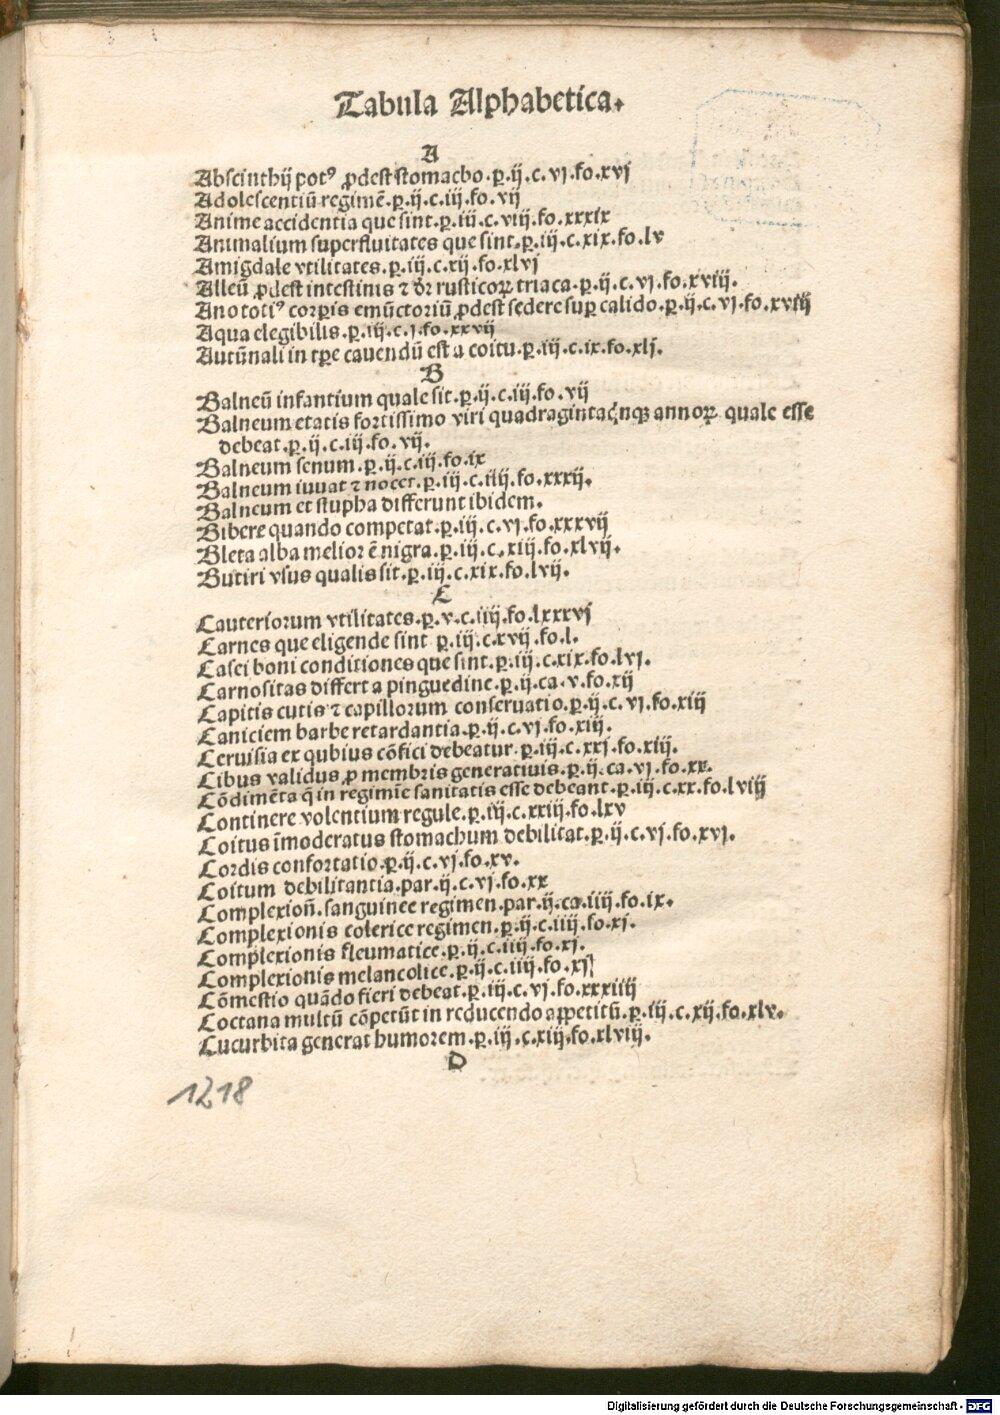 Tabula Alphabetica.
A
Abscinthij potꝰ ꝓdest stomacho.p.ij.c.vj.fo.xvj
Adolescentiū regimē.p.ij.c.iij.fo.vij
Anime accidentia que sint.p.iij.c.viij.fo.xxxix
Animalium superfluitates que sint.p.iij.c.xix.fo.lv
Amigdale vtilitates.p.iij.c.xij.fo.xlvj
Alleū ꝓdest intestinis ⁊ dr̄ rusticoꝝ triaca.p.ij.c.vj.fo.xviij.
Ano totiꝰ corꝑis emūctoriū ꝓdest sedere suꝑ calido.p.ij.c.vj.fo.xviij
Aqua elegibilis.p.iij.c.j.fo.xxvij
Autūnali in tꝑe cauendū est a coitu.p.iij.c.ix.fo.xlj.
B
Balneū infantium quale sit.p.ij.c.iij.fo.vij
Balneum etatis fortissimo viri quadragintaqnqꝫ annoꝝ quale esse
debeat.p.ij.c.iij.fo.vij.
Balneum senum.p.ij.c.iij.fo.ix
Balneum iuuat ⁊ nocet.p.iij.c.iiij.fo.xxxij.
Balneum et stupha differunt ibidem.
Bibere quando competat.p.iij.c.vj.fo.xxxvij
Bleta alba melior ē nigra.p.iij.c.xiij.fo.xlvij.
Butiri vsus qualis sit.p.iij.c.xix.fo.lvij.
C
Cauteriorum vtilitates.p.v.c.iiij.fo.lxxxvj
Carnes que eligende sint p.iij.c.xvij.fo.l.
Casei boni conditiones que sint.p.iij.c.xix.fo.lvj.
Carnositas differt a pinguedine.p.ij.ca.v.fo.xij
Capitis cutis ⁊ capillorum conseruatio.p.ij.c.vj.fo.xiij
Caniciem barbe retardantia.p.ij.c.vj.fo.xiij.
Ceruisia ex qubius cōfici debeatur.p.iij.c.xxj.fo.xlij.
Cibus validus ꝓ membris generatiuis.p.ij.ca.vj.fo.xx.
Cōdimēta q̄ in regimīe sanitatis esse debeant.p.iij.c.xx.fo.lviij
Continere volentium regule.p.iij.c.xxiij.fo.lxv
Coitus īmoderatus stomachum debilitat.p.ij.c.vj.fo.xvj.
Cordis confortatio.p.ij.c.vj.fo.xv.
Coitum debilitantia.par.ij.c.vj.fo.xx
Complexioñ.sanguinee regimen.par.ij.ca.iiij.fo.ix.
Complexionis colerice regimen.p.ij.c.iiij.fo.xj.
Complexionis fleumatice.p.ij.c.iiij.fo.xj.
Complexionis melancolice.p.ij.c.iiij.fo.xij
Cōmestio quādo fieri debeat.p.iij.c.vj.fo.xxxiiij
Coctana multū cōpetūt in reducendo appetitū.p.iij.c.xij.fo.xlv.
Cucurbita generat humorem.p.iij.c.xiij.fo.xlviij.
D
1218
Digitalisierung gefördert durch die Deutsche Forschungsgemeinschaft - DFG